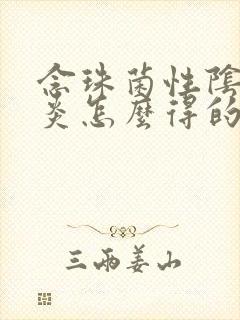 念珠菌性陰
炎怎麼得的
三兩姜山